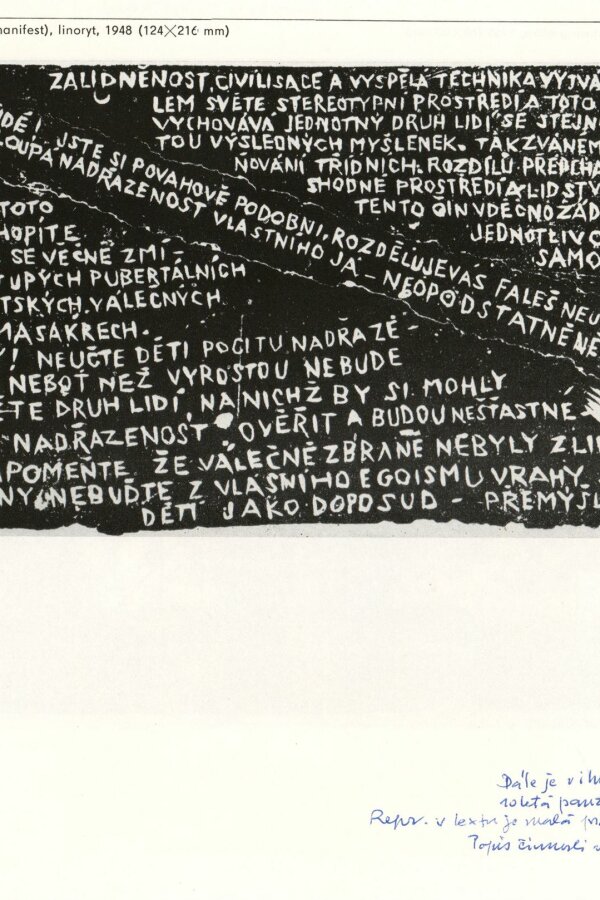 manifest), linoryt, 1948 (124×216 mm)
ZALIDNĚNOST, CIVILISACE A VYSPĚLÁ TECHNIKA VYTVÁ
LEM SVĚTE STEREOTYPNÍ PROSTŘEDÍ A TOTO
VYCHOVÁVÁ JEDNOTNÝ DRUH LIDÍ SE STEJN
TOU VÝSLEDNÝCH MYŠLENEK. TAKZVANÉM
ŇOVÁNÍ TŘÍDNÍCH ROZDÍLŮ PŘEPCHA
SHODNÉ PROSTŘEDÍ A LIDSTV
TENTO ČIN VDĚČNO ŽÁD
JEDNOTLIVC
SAMO
IDÉ! JSTE SI POVAHOVĚ PODOBNI, ROZDĚLUJE VÁS FALEŠ NEU
LOUPÁ NADŘAZENOST VLASTNÍHO JÁ – NEOPODSTATNĚNĚ
TOTO
HOPÍTE
SE VĚČNĚ ZMÍ-
TUPÝCH PUBERTÁLNÍCH
TSKÝCH, VÁLEČNÝCH
MASÁKRECH.
! NEUČTE DĚTI POCITU NADŘAZE-
NEBOŤ NEŽ VYROSTOU NEBUDE
TE DRUH LIDÍ, NA NICHŽ BY SI MOHLY
NADŘAZENOST OVĚŘIT A BUDOU NEŠŤASTNÉ
POMEŇTE ŽE VÁLEČNÉ ZBRANĚ NEBYLY Z LI
NY, NEBUĎTE Z VLASNÍHO EGOISMU VRAHY
DĚTÍ JAKO DOPOSUD – PŘEMÝŠL
Dále je
Repr. v textu je malá
Popis činnosti